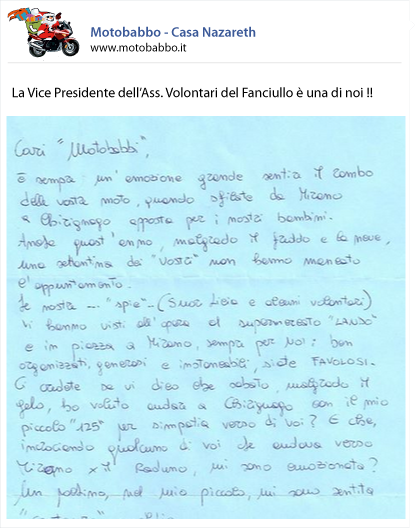 Motobabbo - Casa Nazareth
www.motobabbo.it
La Vice Presidente dell'Ass. Volontari del Fanciullo è una di noi !!
Cari "Motobabbi",
è sempre un'emozione grande sentire il rombo
delle vostre moto, quando sfilate da Mirano
a Chirignago apposta per i nostri bambini.
Anche quest'anno, malgrado il freddo e la neve,
una settantina dei "vostri" non hanno mancato
l'appuntamento.
Le nostre ... "spie"... (Suor Lisia e alcuni volontari)
Vi hanno visti all'opera al supermercato "LANDO"
e in piazza a Mirano, sempre per noi: ben
organizzati, generosi e instancabili, siete FAVOLOSI.
Ci credete se vi dico che sabato, malgrado il
gelo, ho voluto andare a Chirignago con il mio
piccolo "125" per simpatia verso di voi? E che,
incrociando qualcuno di voi che andava verso
Mirano x il Raduno, mi sono emozionata?
Un pochino, nel mio piccolo, mi sono sentita